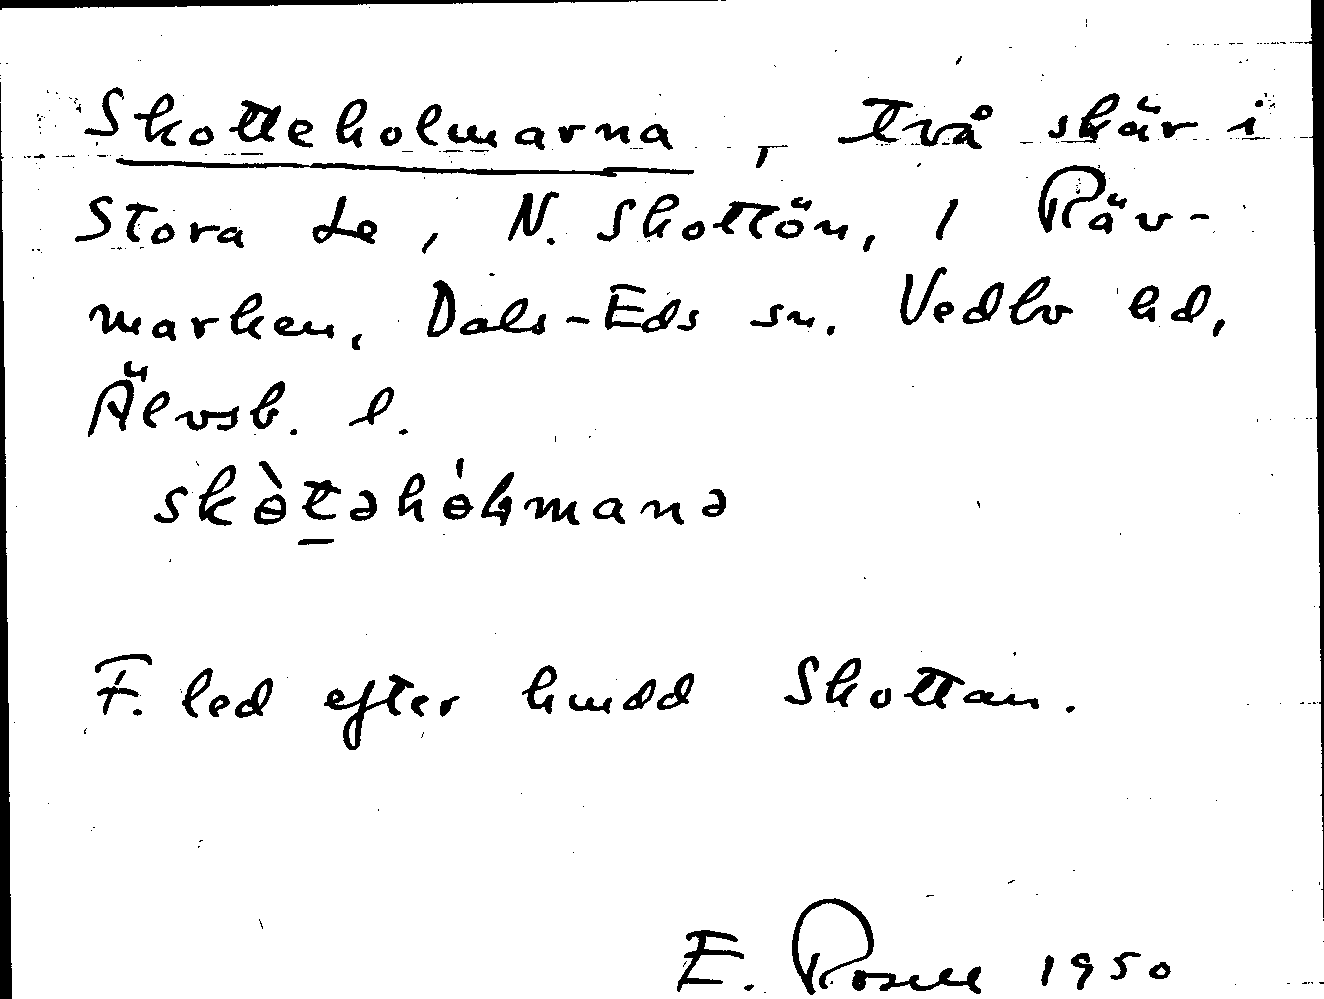 Skotteholmarna, två skär i
Stora Le, N. Skottön, 1 Räv-
marken, Dals-Eds sn. Vedbo hd,
Älvsb. l.
skɵ̀t̲əhɵ́ɫmanə
F. led efter hmdd Skottan.
E. Rosell 1950